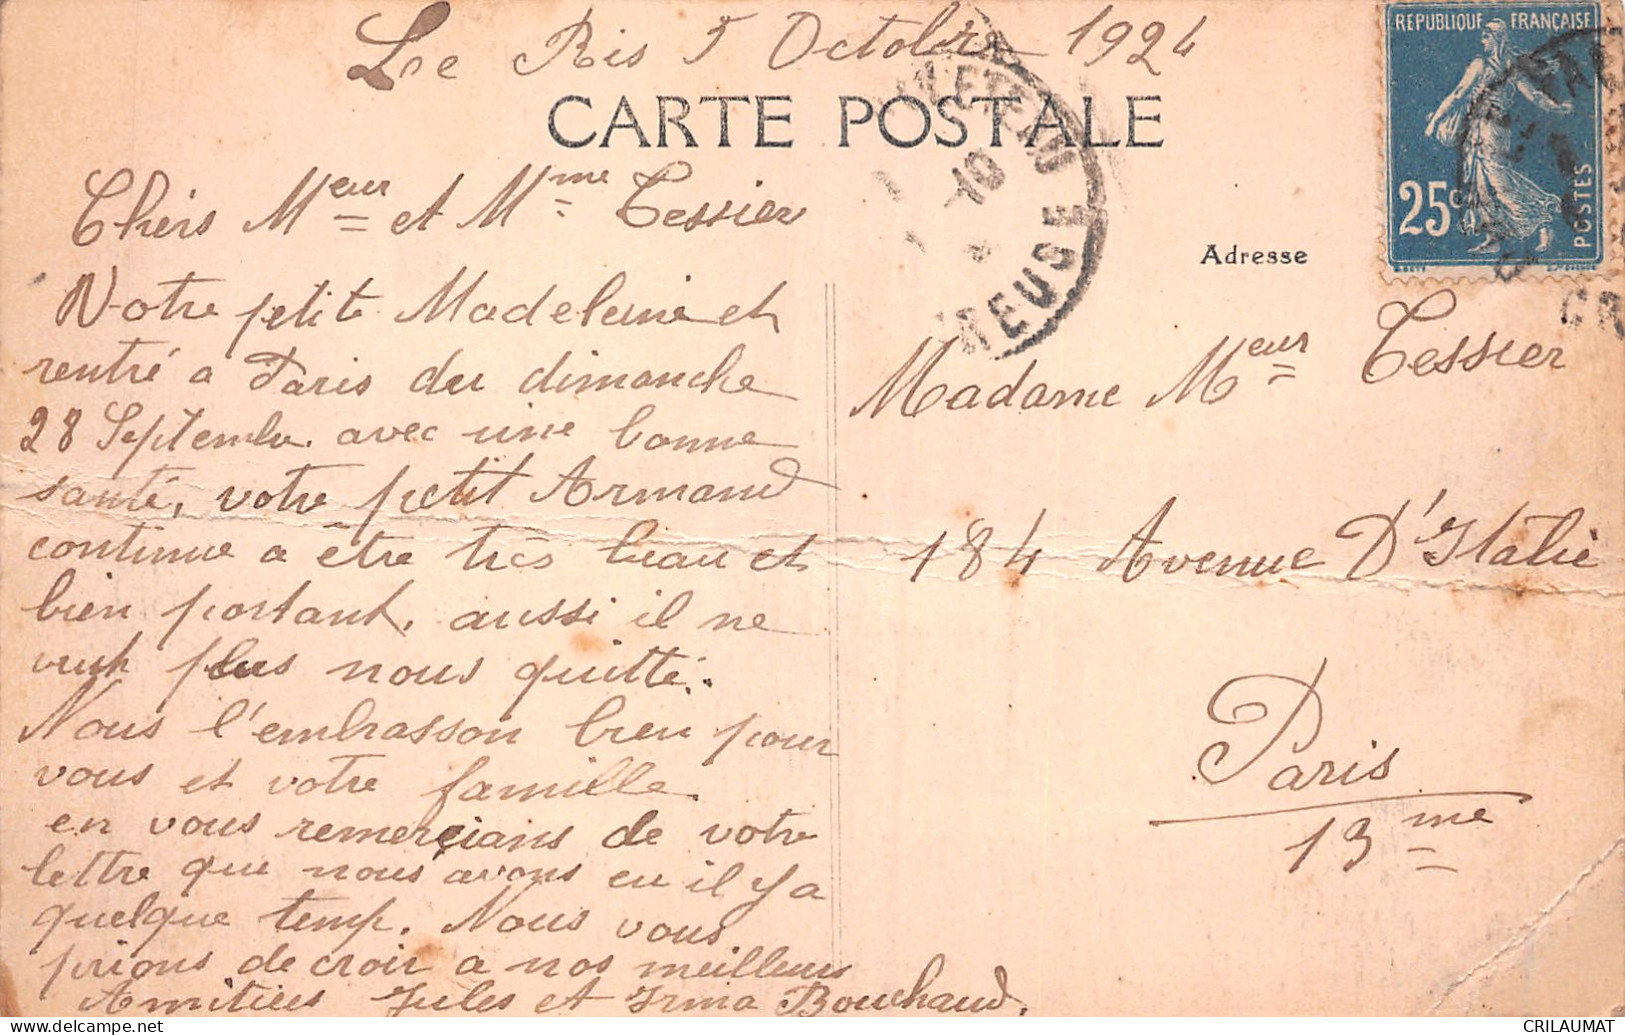 Le Ris 5 Octobre 1924
CARTE POSTALE
REPUBLIQUE FRANÇAISE
25c
POSTES
CREUSE
10
CR
Adresse
Chers Meur et Mme Tessier
Notre petite Madeleine et
rentré a Paris du dimanche
28 Septembre avec une bonne
santé, votre petit Armand
continue a être très beau et
bien portant, aussi il ne
veut plus nous quitté.
Nous l'embrasson bien pour
vous et votre famille
en vous remerçians de votre
lettre que nous avons eu il y a
quelque temp. Nous vous
prions de croir a nos meilleurs
Amitiées Jules et Irma Bouchaud.
Madame Meur Tessier
184 Avenue D'Italie
Paris
13me
CRILAUMAT